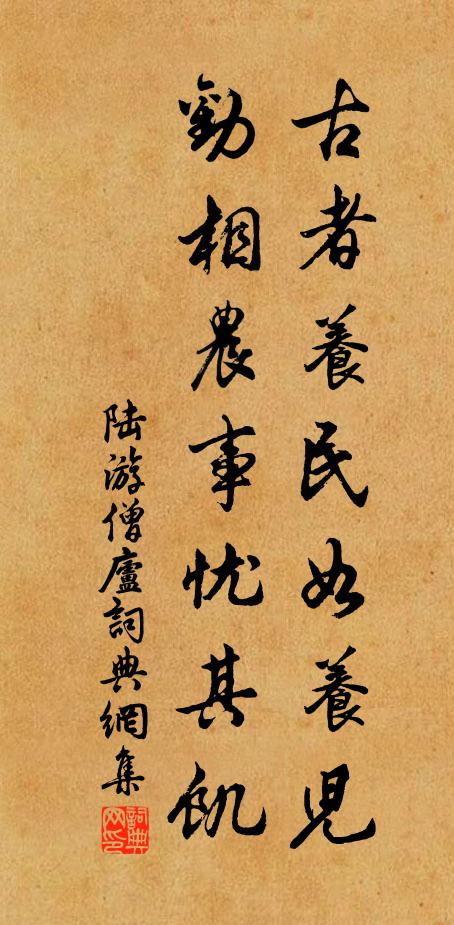 古者養民如養児
勸相農事忧其飢
陸游僧廬詞典網集
詞典网印